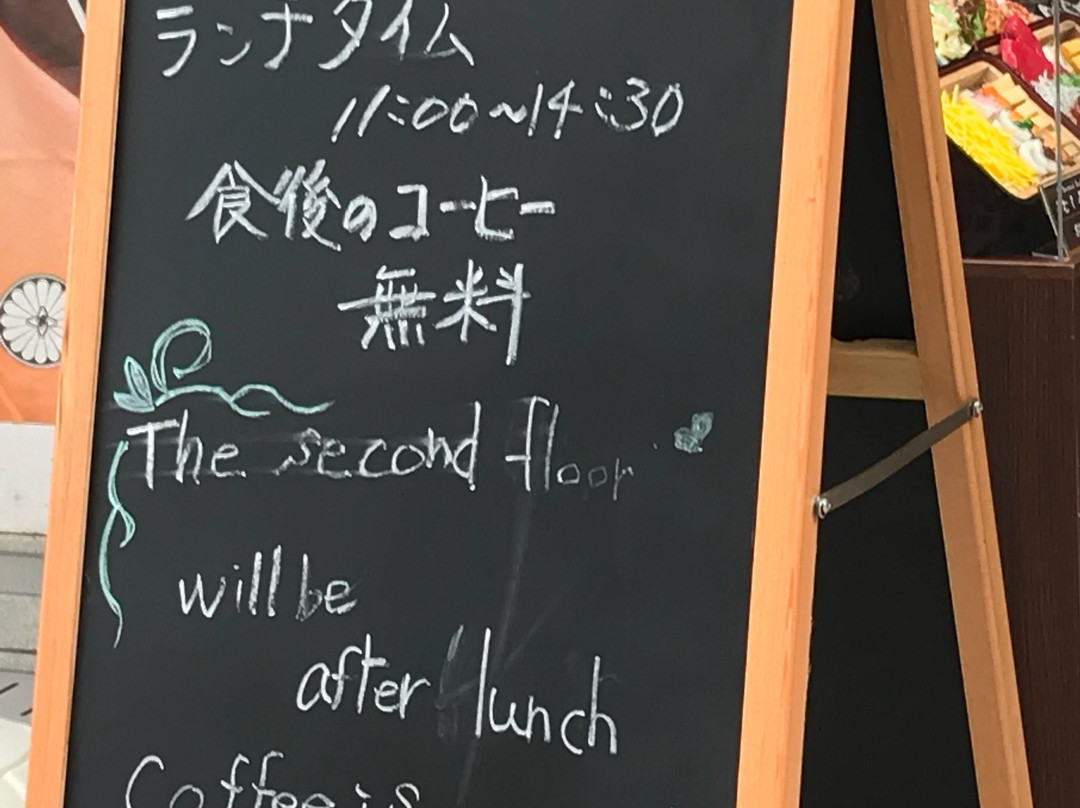 ランチタイム
11:00~14:30
食後のコーヒー
無料
The second floor
will be
after lunch
Coffee is